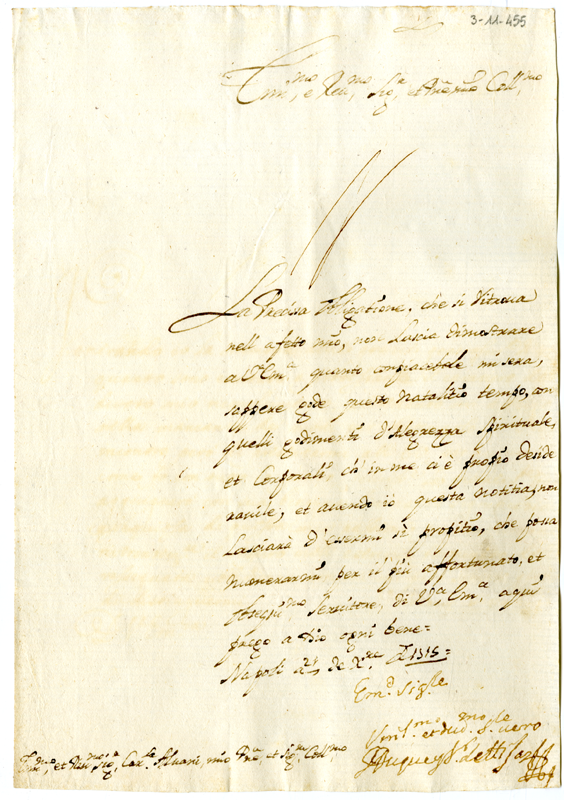 3-11-455
Em.mo, e Reu.mo Sig.r, et Pne mio Coll.mo
La Precisa Obligatione, che si ritroua
nell'afetto mio, non Lascia dimostrare
a V. Em.a quanto conpiacebole mi sera,
sappere gode questo natalitio tempo, con
quelli godimenti d'Alegrezza spirituale,
et Corporali, ch'in me ci è propio deside
rauile, et auendo io questa notitia, non
Lasciarà d'esermi sì propitio, che possa
numerarmi per il più affortunato, et
obsequi.mo Seruitore, di V.a Em.a a qui
prego a Dio ogni bene=
Napoli de X.re
Em.o Sig.re
et
Em.mo, et Reu.mo Sig.r, Car.le Aluani, mio Pne, et Sig.re Coll.mo